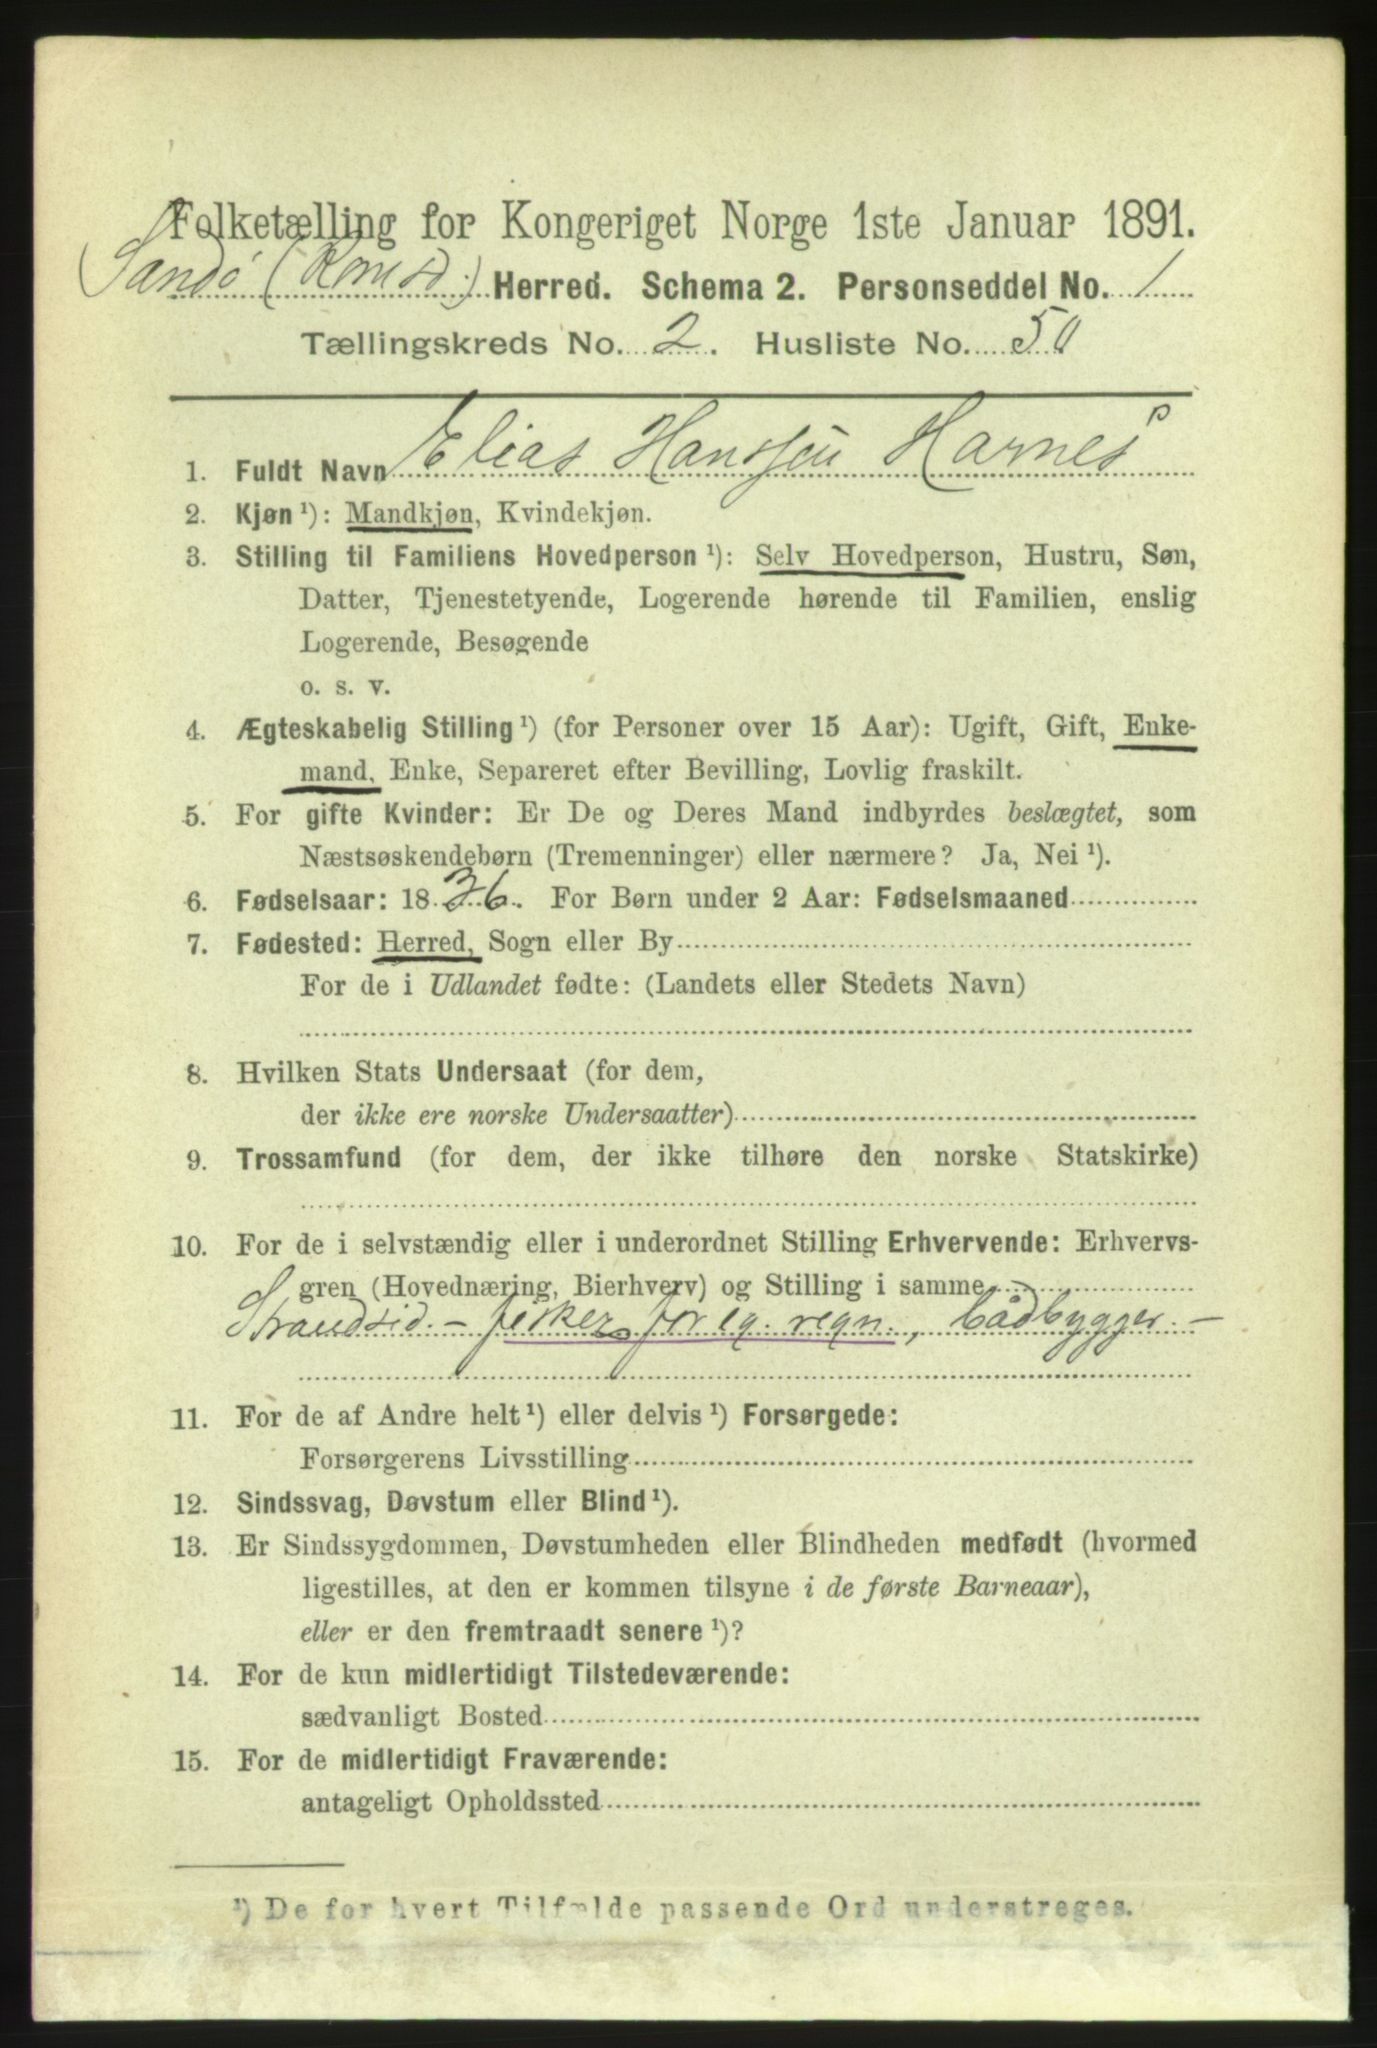 Folketælling for Kongeriget Norge 1ste Januar 1891.
Sandø (Romsd.) Herred. Schema 2. Personseddel No. 1
Tællingskreds No. 2. Husliste No. 50
1. Fuldt Navn Elias Hanssen Harnes
2. Kjøn ¹): Mandkjøn, Kvindekjøn.
3. Stilling til Familiens Hovedperson ¹): Selv Hovedperson, Hustru, Søn,
Datter, Tjenestetyende, Logerende hørende til Familien, enslig
Logerende, Besøgende
o. s. v.
4. Ægteskabelig Stilling ¹) (for Personer over 15 Aar): Ugift, Gift, Enke-
mand, Enke, Separeret efter Bevilling, Lovlig fraskilt.
5. For gifte Kvinder: Er De og Deres Mand indbyrdes beslægtet, som
Næstsøskendebørn (Tremenninger) eller nærmere? Ja, Nei ¹).
6. Fødselsaar: 1836. For Børn under 2 Aar: Fødselsmaaned
7. Fødested: Herred, Sogn eller By
For de i Udlandet fødte: (Landets eller Stedets Navn)
8. Hvilken Stats Undersaat (for dem,
der ikke ere norske Undersaatter)
9. Trossamfund (for dem, der ikke tilhøre den norske Statskirke)
10. For de i selvstændig eller i underordnet Stilling Erhvervende: Erhvervs-
gren (Hovednæring, Bierhverv) og Stilling i samme
Strandsid. – fisker for eg. regn., bådbygger. –
11. For de af Andre helt ¹) eller delvis ¹) Forsørgede:
Forsørgerens Livsstilling
12. Sindssvag, Døvstum eller Blind ¹).
13. Er Sindssygdommen, Døvstumheden eller Blindheden medfødt (hvormed
ligestilles, at den er kommen tilsyne i de første Barneaar),
eller er den fremtraadt senere ¹)?
14. For de kun midlertidigt Tilstedeværende:
sædvanligt Bosted
15. For de midlertidigt Fraværende:
antageligt Opholdssted
¹) De for hvert Tilfælde passende Ord understreges.